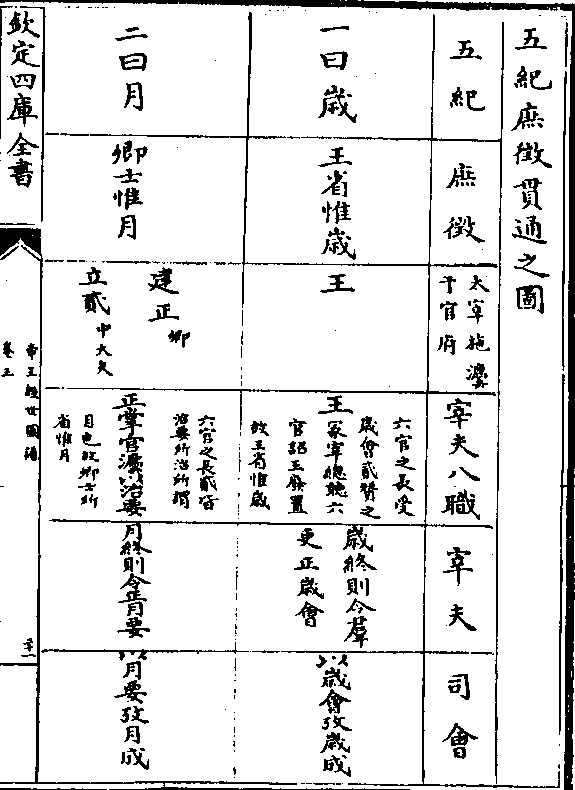 五紀庶徵貫通之圖
五紀
庶徵
太宰施灋
于官府
宰夫八職
宰夫
司會
一曰歲
王省惟歲
王
王
六官之長受
歲會貳贊之
冢宰總聽六
官詔王廢置
故王省惟歲
歲終則令羣
更正歲會
以歲會攷歲成
二曰月
卿士惟月
建正卿
立貳中大夫
正掌官灋以治要
六官之長貳皆
治要所治所謂
目也故卿士所
省惟月
月終則令正月要
以月要攷月成
欽定四庫全書
帝王經世圖譜
卷五